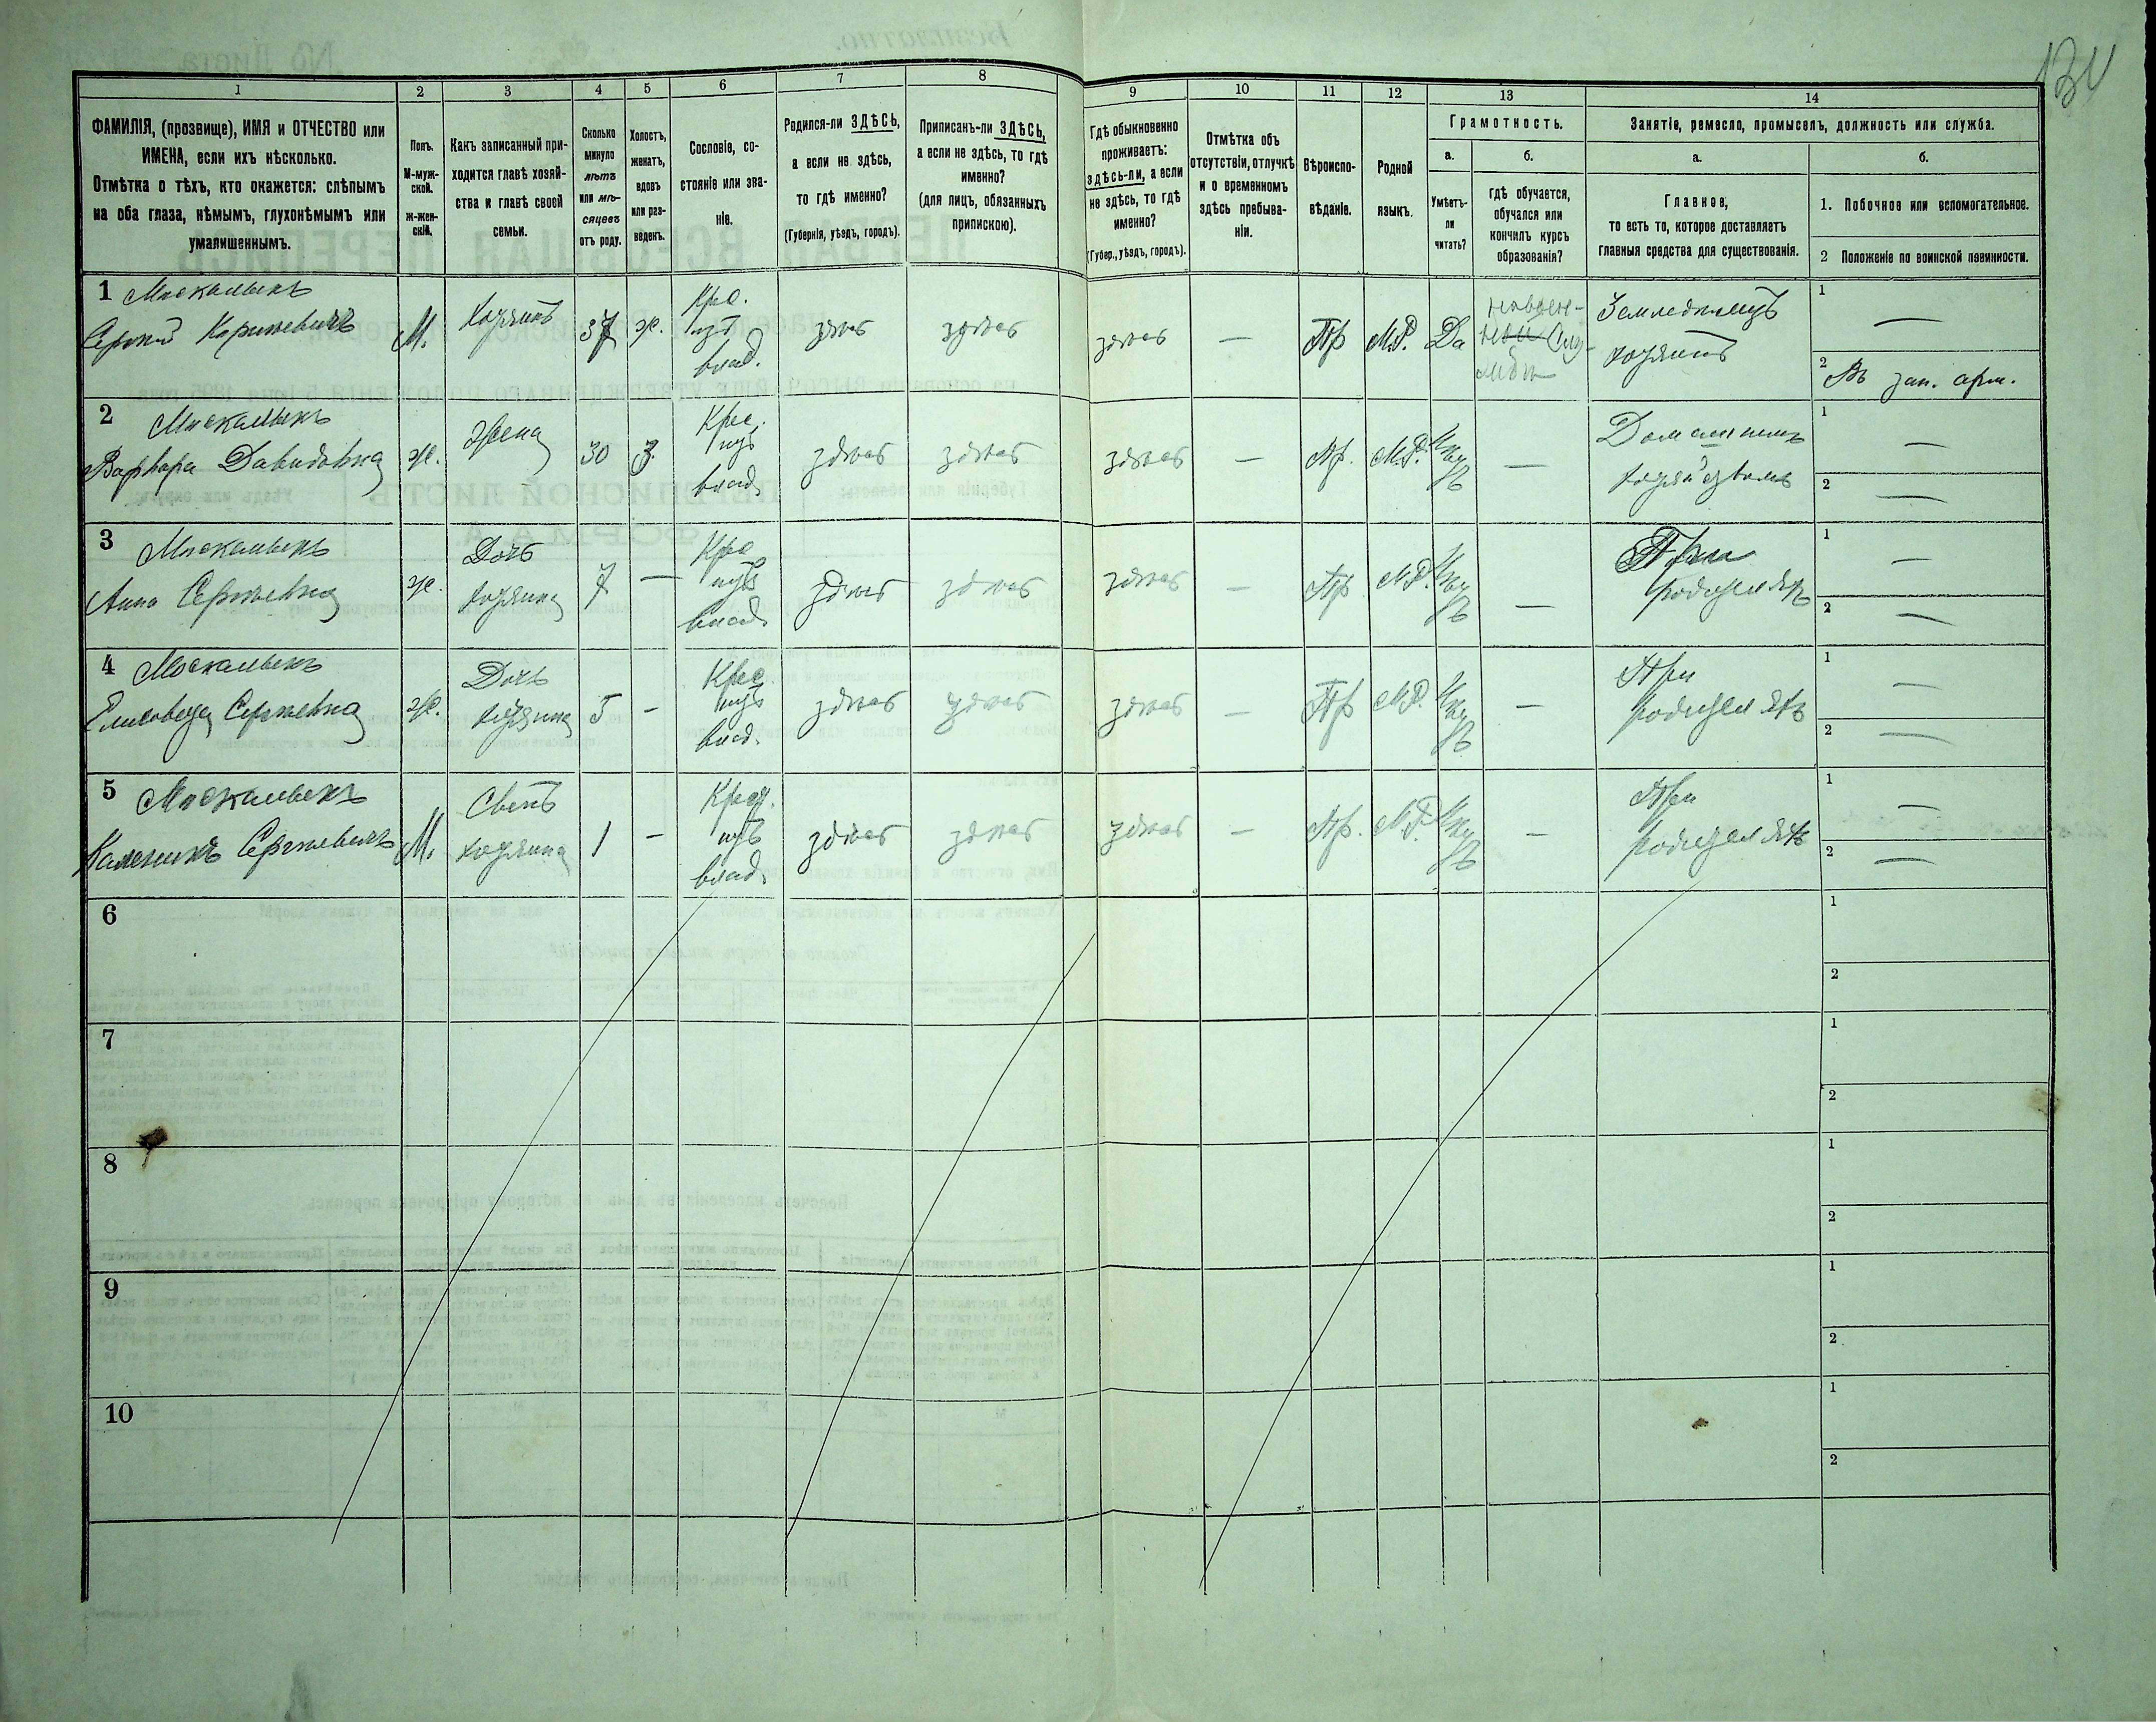 1 2 3 4 5 6 7 8 9 10 11 12 13 14
ФАМИЛІЯ, (прозвище), ИМЯ и ОТЧЕСТВО или
ИМЕНА, если ихъ нѣсколько.
Отмѣтка о тѣхъ, кто окажется: слѣпымъ
на оба глаза, нѣмымъ, глухонѣмымъ или
умалишеннымъ.
Полъ.
М-муж-
ской.
Ж-жен-
скій.
Какъ записанный при-
ходится главѣ хозяй-
ства и главѣ своей
семьи.
Сколько
минуло
лѣтъ
или мѣ-
сяцевъ
отъ роду.
Холостъ,
женатъ,
вдовъ
или раз-
веденъ.
Сословіе, со-
стояніе или зва-
ніе.
Родился-ли ЗДѢСЬ,
а если не здѣсь,
то гдѣ именно?
(Губернія, уѣздъ, городъ).
Приписанъ-ли ЗДѢСЬ,
а если не здѣсь, то гдѣ
именно?
(для лицъ, обязанныхъ
припискою).
Гдѣ обыкновенно
проживаетъ:
здѣсь-ли, а если
не здѣсь, то гдѣ
именно?
(Губер., уѣздъ, городъ).
Отмѣтка объ
отсутствіи, отлучкѣ
и о временномъ
здѣсь пребыва-
ніи.
Вѣроиспо-
вѣданіе.
Родной
языкъ.
Грамотность.
а.
Умѣетъ-
ли
читать?
б.
гдѣ обучается,
обучался или
кончилъ курсъ
образованія?
Занятіе, ремесло, промыселъ, должность или служба.
а.
Главное,
то есть то, которое доставляетъ
главныя средства для существованія.
б.
1. Побочное или вспомогательное.
2 Положеніе по воинской повинности.
1 Москалыкъ
М. Хозяинъ 37 ж. Кре.
изъ
влад. здѣсь здѣсь здѣсь — Пр М.Р. Да
Земледѣлецъ
хозяинъ
1 —
2 Въ зап. арм.
2 Москалыкъ
Варвара Давидовна ж. Жена 30 З. Крес.
изъ
влад. здѣсь здѣсь здѣсь — Пр. М.Р. —
Домашнимъ
1 —
2 —
3 Москалыкъ
Анна Сергѣевна ж. Дочь
хозяина 7 — Крес
изъ
влад. здѣсь здѣсь здѣсь — Пр М.Р. —
При
родителяхъ
1 —
2 —
4 Москалыкъ
Елисавета Сергѣевна ж. Дочь
хозяина 5 - Крес.
изъ
влад. здѣсь здѣсь здѣсь — Пр М.Р. —
При
родителяхъ
1 —
2 —
5 Москалыкъ
Каленикъ Сергѣевичъ М. Сынъ
хозяина 1 - Крест.
изъ
влад. здѣсь здѣсь здѣсь — Пр. М.Р. —
При
родителяхъ
1 —
2 —
6 1
2
7 1
2
8 1
2
9 1
2
10 1
2